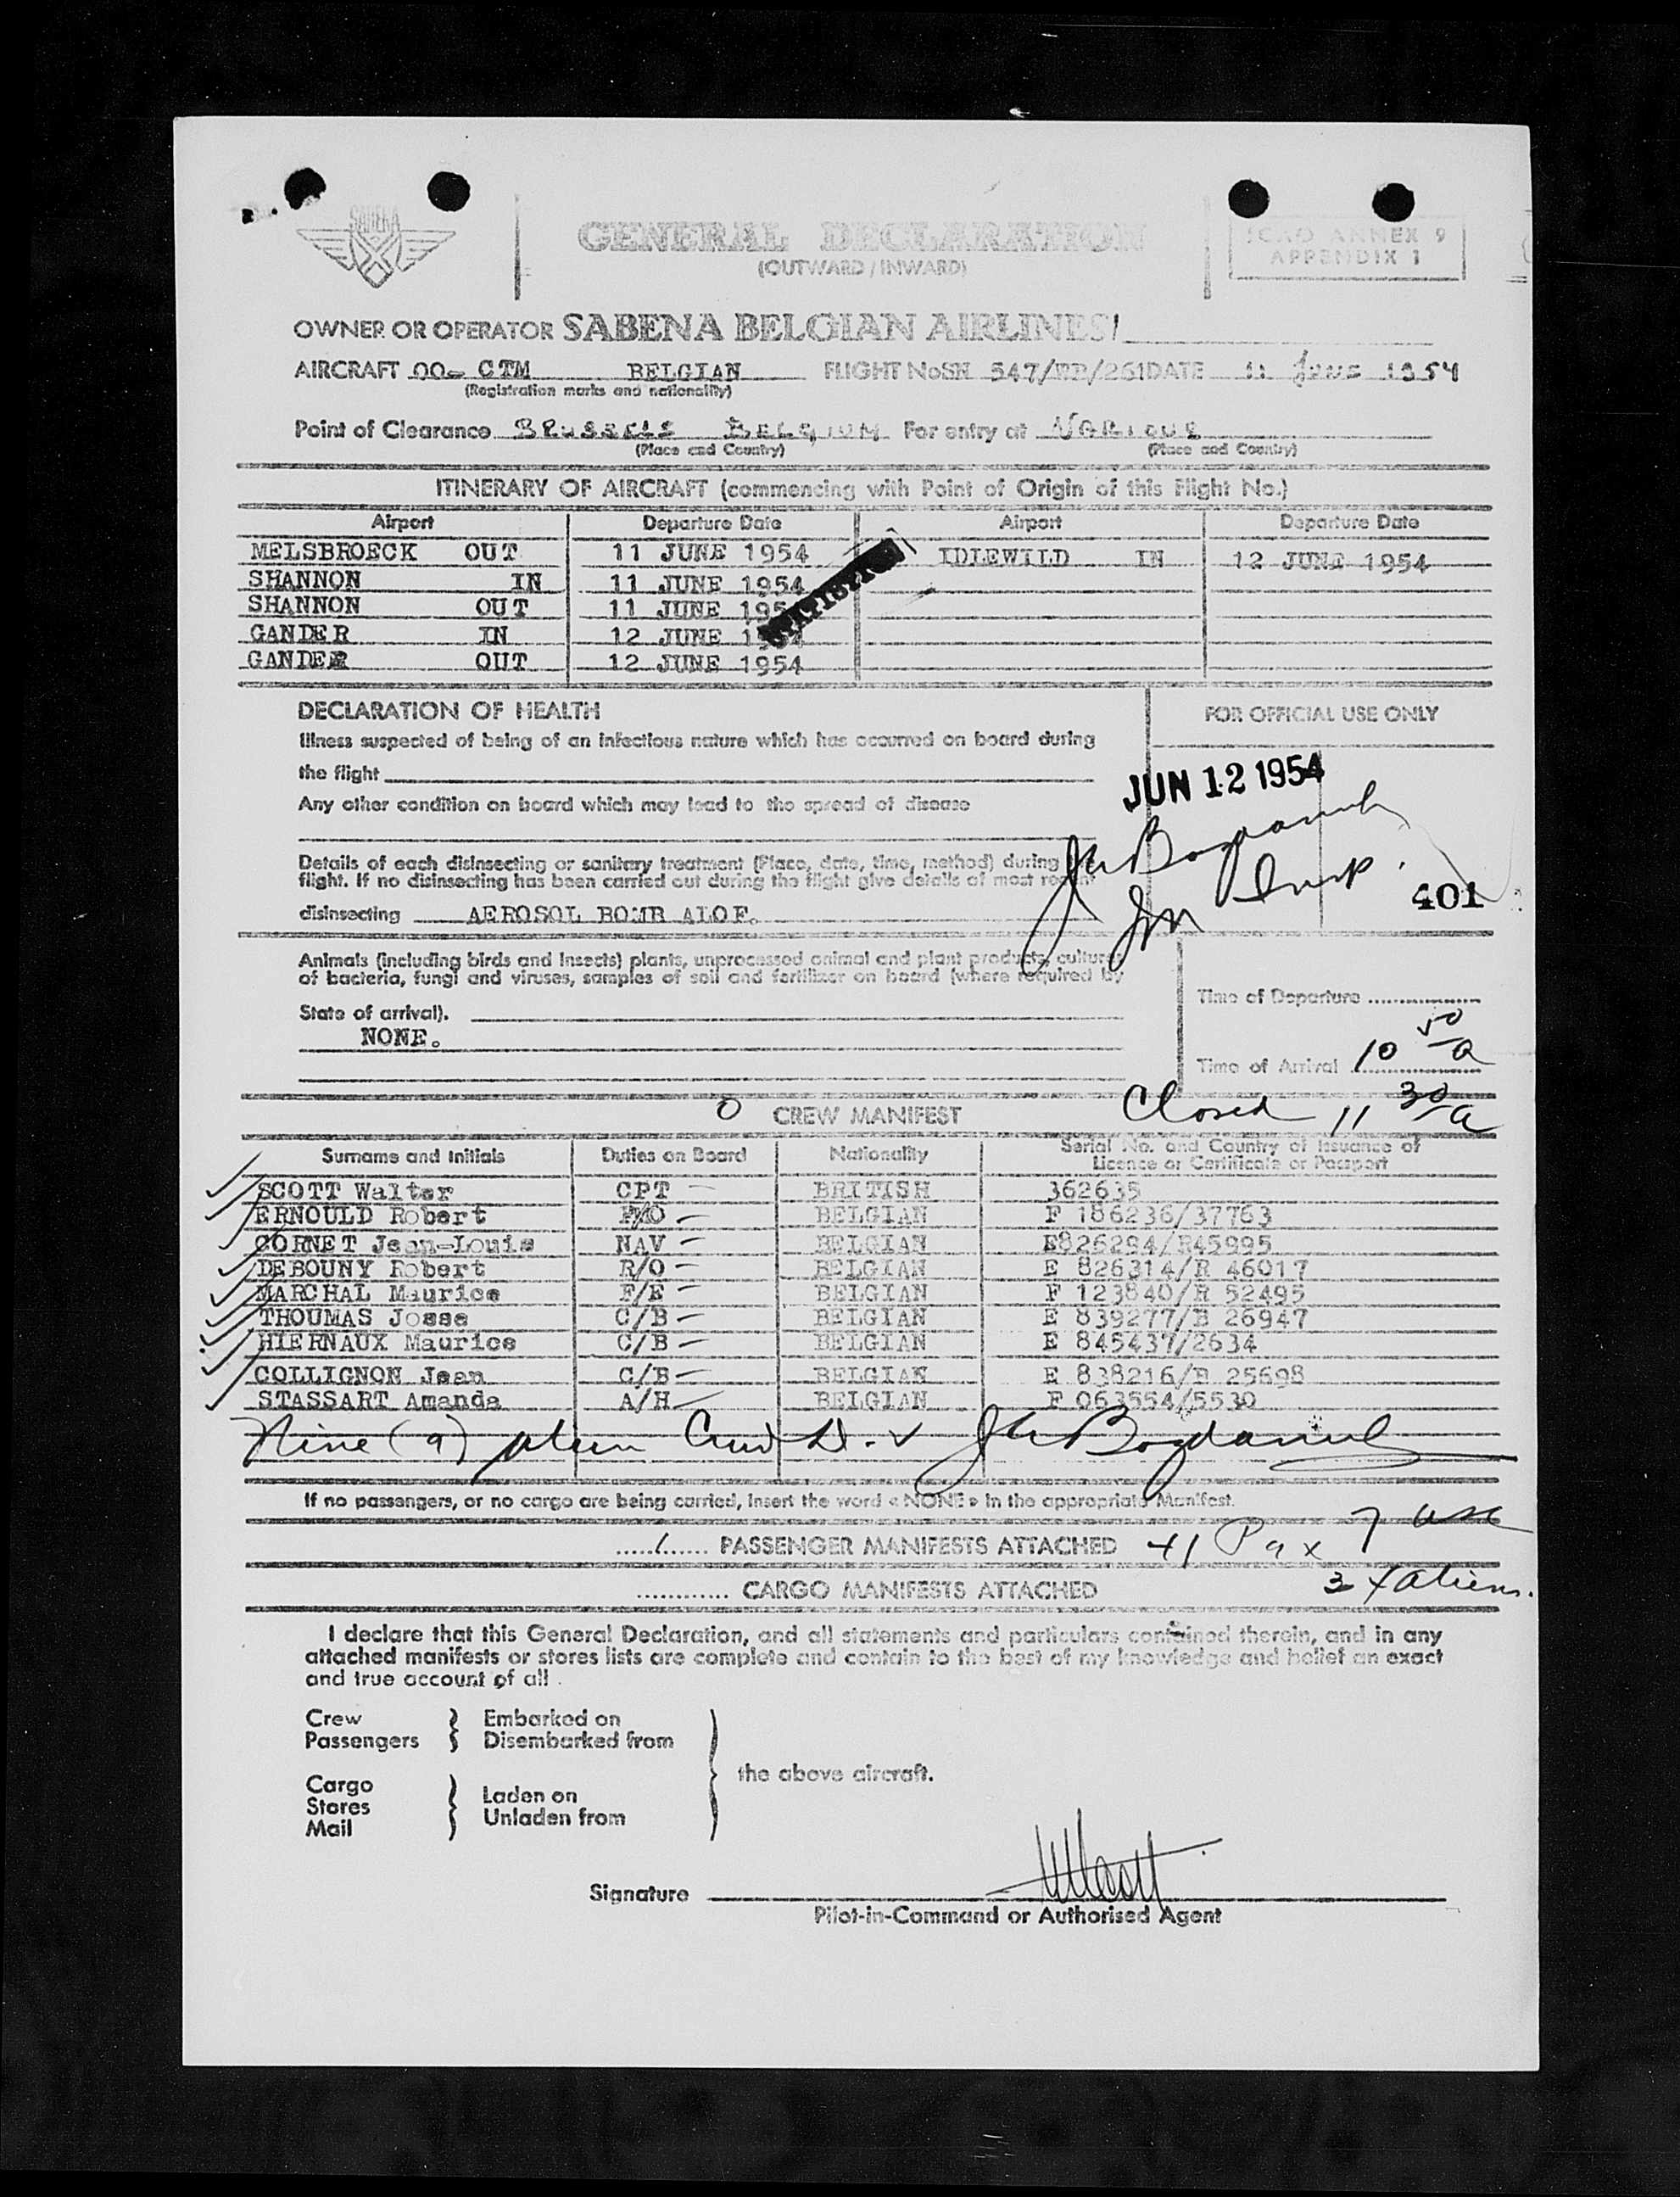 SABENA
GENERAL DECLARATION
(OUTWARD / INWARD)
ICAO ANNEX 9
APPENDIX 1
OWNER OR OPERATOR SABENA BELGIAN AIRLINES
AIRCRAFT OO- CTM BELGIAN FLIGHT No SN 547/ /261 DATE 11 JUNE 1954
(Registration marks and nationality)
Point of Clearance BRUSSELS BELGIUM For entry at VARIOUS
(Place and Country) (Place and Country)
ITINERARY OF AIRCRAFT (commencing with Point of Origin of this Flight No.)
Airport Departure Date Airport Departure Date
MELSBROECK OUT 11 JUNE 1954 IDLEWILD IN 12 JUNE 1954
SHANNON IN 11 JUNE 1954
SHANNON OUT 11 JUNE 195
GANDER IN 12 JUNE 1954
GANDER OUT 12 JUNE 1954
DECLARATION OF HEALTH
FOR OFFICIAL USE ONLY
Illness suspected of being of an infectious nature which has occurred on board during
the flight
JUN 12 1954
Any other condition on board which may lead to the spread of disease
Details of each disinsecting or sanitary treatment (Place, date, time, method) during
flight. If no disinsecting has been carried out during the flight give details of most recent
401
disinsecting AEROSOL BOMB ALOF.
Animals (including birds and insects) plants, unprocessed animal and plant products, cultures
of bacteria, fungi and viruses, samples of soil and fertilizer on board (where required by
State of arrival).
NONE.
Time of Departure
Time of Arrival 10 50 a
Closed 11 30 a
0 CREW MANIFEST
Surname and Initials Duties on Board Nationality Serial No. and Country of Issuance of
Licence or Certificate or Passport
SCOTT Walter CPT BRITISH 362635
ERNOULD Robert F/O BELGIAN F 186236/37763
CORNET Jean-Louis NAV BELGIAN E826294/R45995
DEBOUNY Robert R/O BELGIAN E 826314/R 46017
MARCHAL Maurice F/E BELGIAN F 123840/R 52495
THOUMAS Josse C/B BELGIAN E 839277/B 26947
HIERNAUX Maurice C/B BELGIAN E 845437/2634
COLLIGNON Jean C/B BELGIAN E 838216/B 25698
STASSART Amanda A/H BELGIAN F 063554/5530
Nine (9) alien Crew
If no passengers, or no cargo are being carried, insert the word « NONE » in the appropriate Manifest.
1 PASSENGER MANIFESTS ATTACHED 41 Pax 7 usc
CARGO MANIFESTS ATTACHED
aliens.
I declare that this General Declaration, and all statements and particulars contained therein, and in any
attached manifests or stores lists are complete and contain to the best of my knowledge and belief an exact
and true account of all .
Crew Embarked on
Passengers Disembarked from
the above aircraft.
Cargo
Stores Laden on
Mail Unladen from
Signature
Pilot-in-Command or Authorised Agent